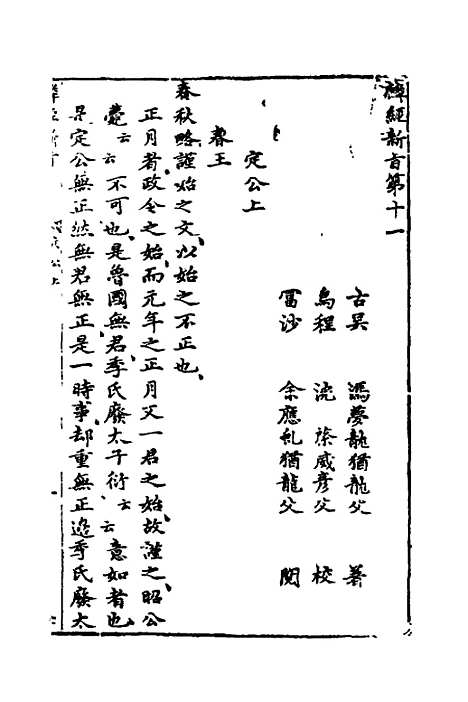 麟經新旨第十一
古吳 馮夢龍猶龍父 著
烏程 沈 棻威彥父 校
冨沙 余應虬猶龍父 閱
定公上
春王
春秋略謹始之文以始之不正也
正月者政令之始而元年之正月又一君之始故謹之昭公
薨云云不可也是魯國無君季氏廢太子衍云云意如者也
是定公無正然無君無正是一時事却重無正邉季氏廢太